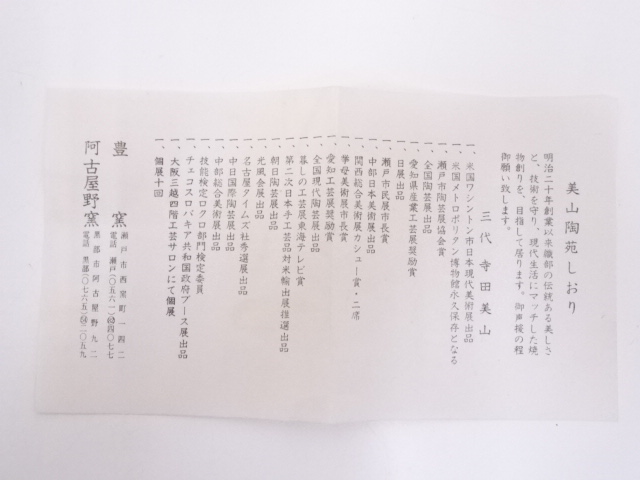 美山陶苑しおり
明治二十年創業以来織部の伝統ある美しさ
と、技術を守り、現代生活にマッチした焼
物創りを、目指して居ります。御声援の程
御願い致します。
三代 寺田美山
一、米国ワシントン市日本現代美術展出品
一、米国メトロポリタン博物館永久保存となる
一、瀬戸市陶芸展協会賞
一、全国陶芸展出品
一、愛知県産業工芸展奨励賞
一、日展出品
一、瀬戸市民展市長賞
一、中部日本美術展出品
一、関西総合美術展カシュー賞・二席
一、華母美術展市長賞
一、愛知工芸展奨励賞
一、全国現代陶芸展出品
一、暮しの工芸展東海テレビ賞
一、第二次日本手工芸品対米輸出展推選出品
一、朝日陶芸展出品
一、光風会展出品
一、名古屋タイムズ社秀選展出品
一、中日国際陶芸展出品
一、中部総合美術展出品
一、技能検定ロクロ部門検定委員
一、チェコスロバキア共和国政府ブース展出品
一、大阪三越四階工芸サロンにて個展
一、個展十回
豊窯 瀬戸市西窯町一四二
電話 瀬戸(〇五六一)〇四〇七七
阿古屋野窯 黒部市阿古屋野九二
電話 黒部(〇七六五)二〇五九